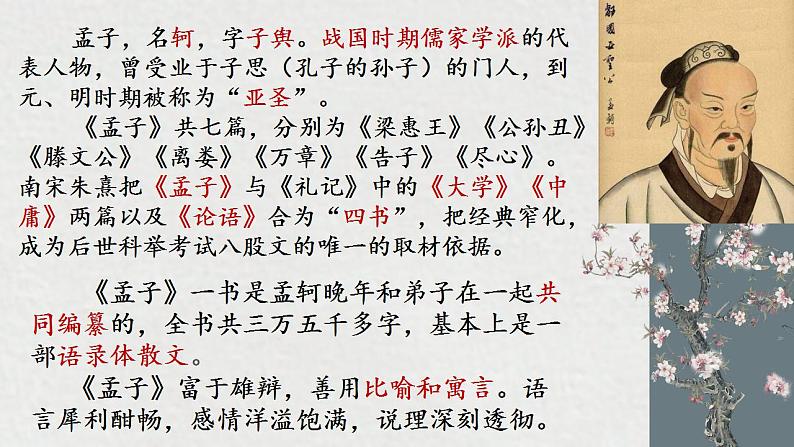 孟子，名轲，字子舆。战国时期儒家学派的代
表人物，曾受业于子思（孔子的孙子）的门人，到
元、明时期被称为“亚圣”。
《孟子》共七篇，分别为《梁惠王》《公孙丑》
《滕文公》《离娄》《万章》《告子》《尽心》。
南宋朱熹把《孟子》与《礼记》中的《大学》《中
庸》两篇以及《论语》合为“四书”，把经典窄化，
成为后世科举考试八股文的唯一的取材依据。
《孟子》一书是孟轲晚年和弟子在一起共
同编纂的，全书共三万五千多字，基本上是一
部语录体散文。
《孟子》富于雄辩，善用比喻和寓言。语
言犀利酣畅，感情洋溢饱满，说理深刻透彻。
邹国亚圣公
孟轲